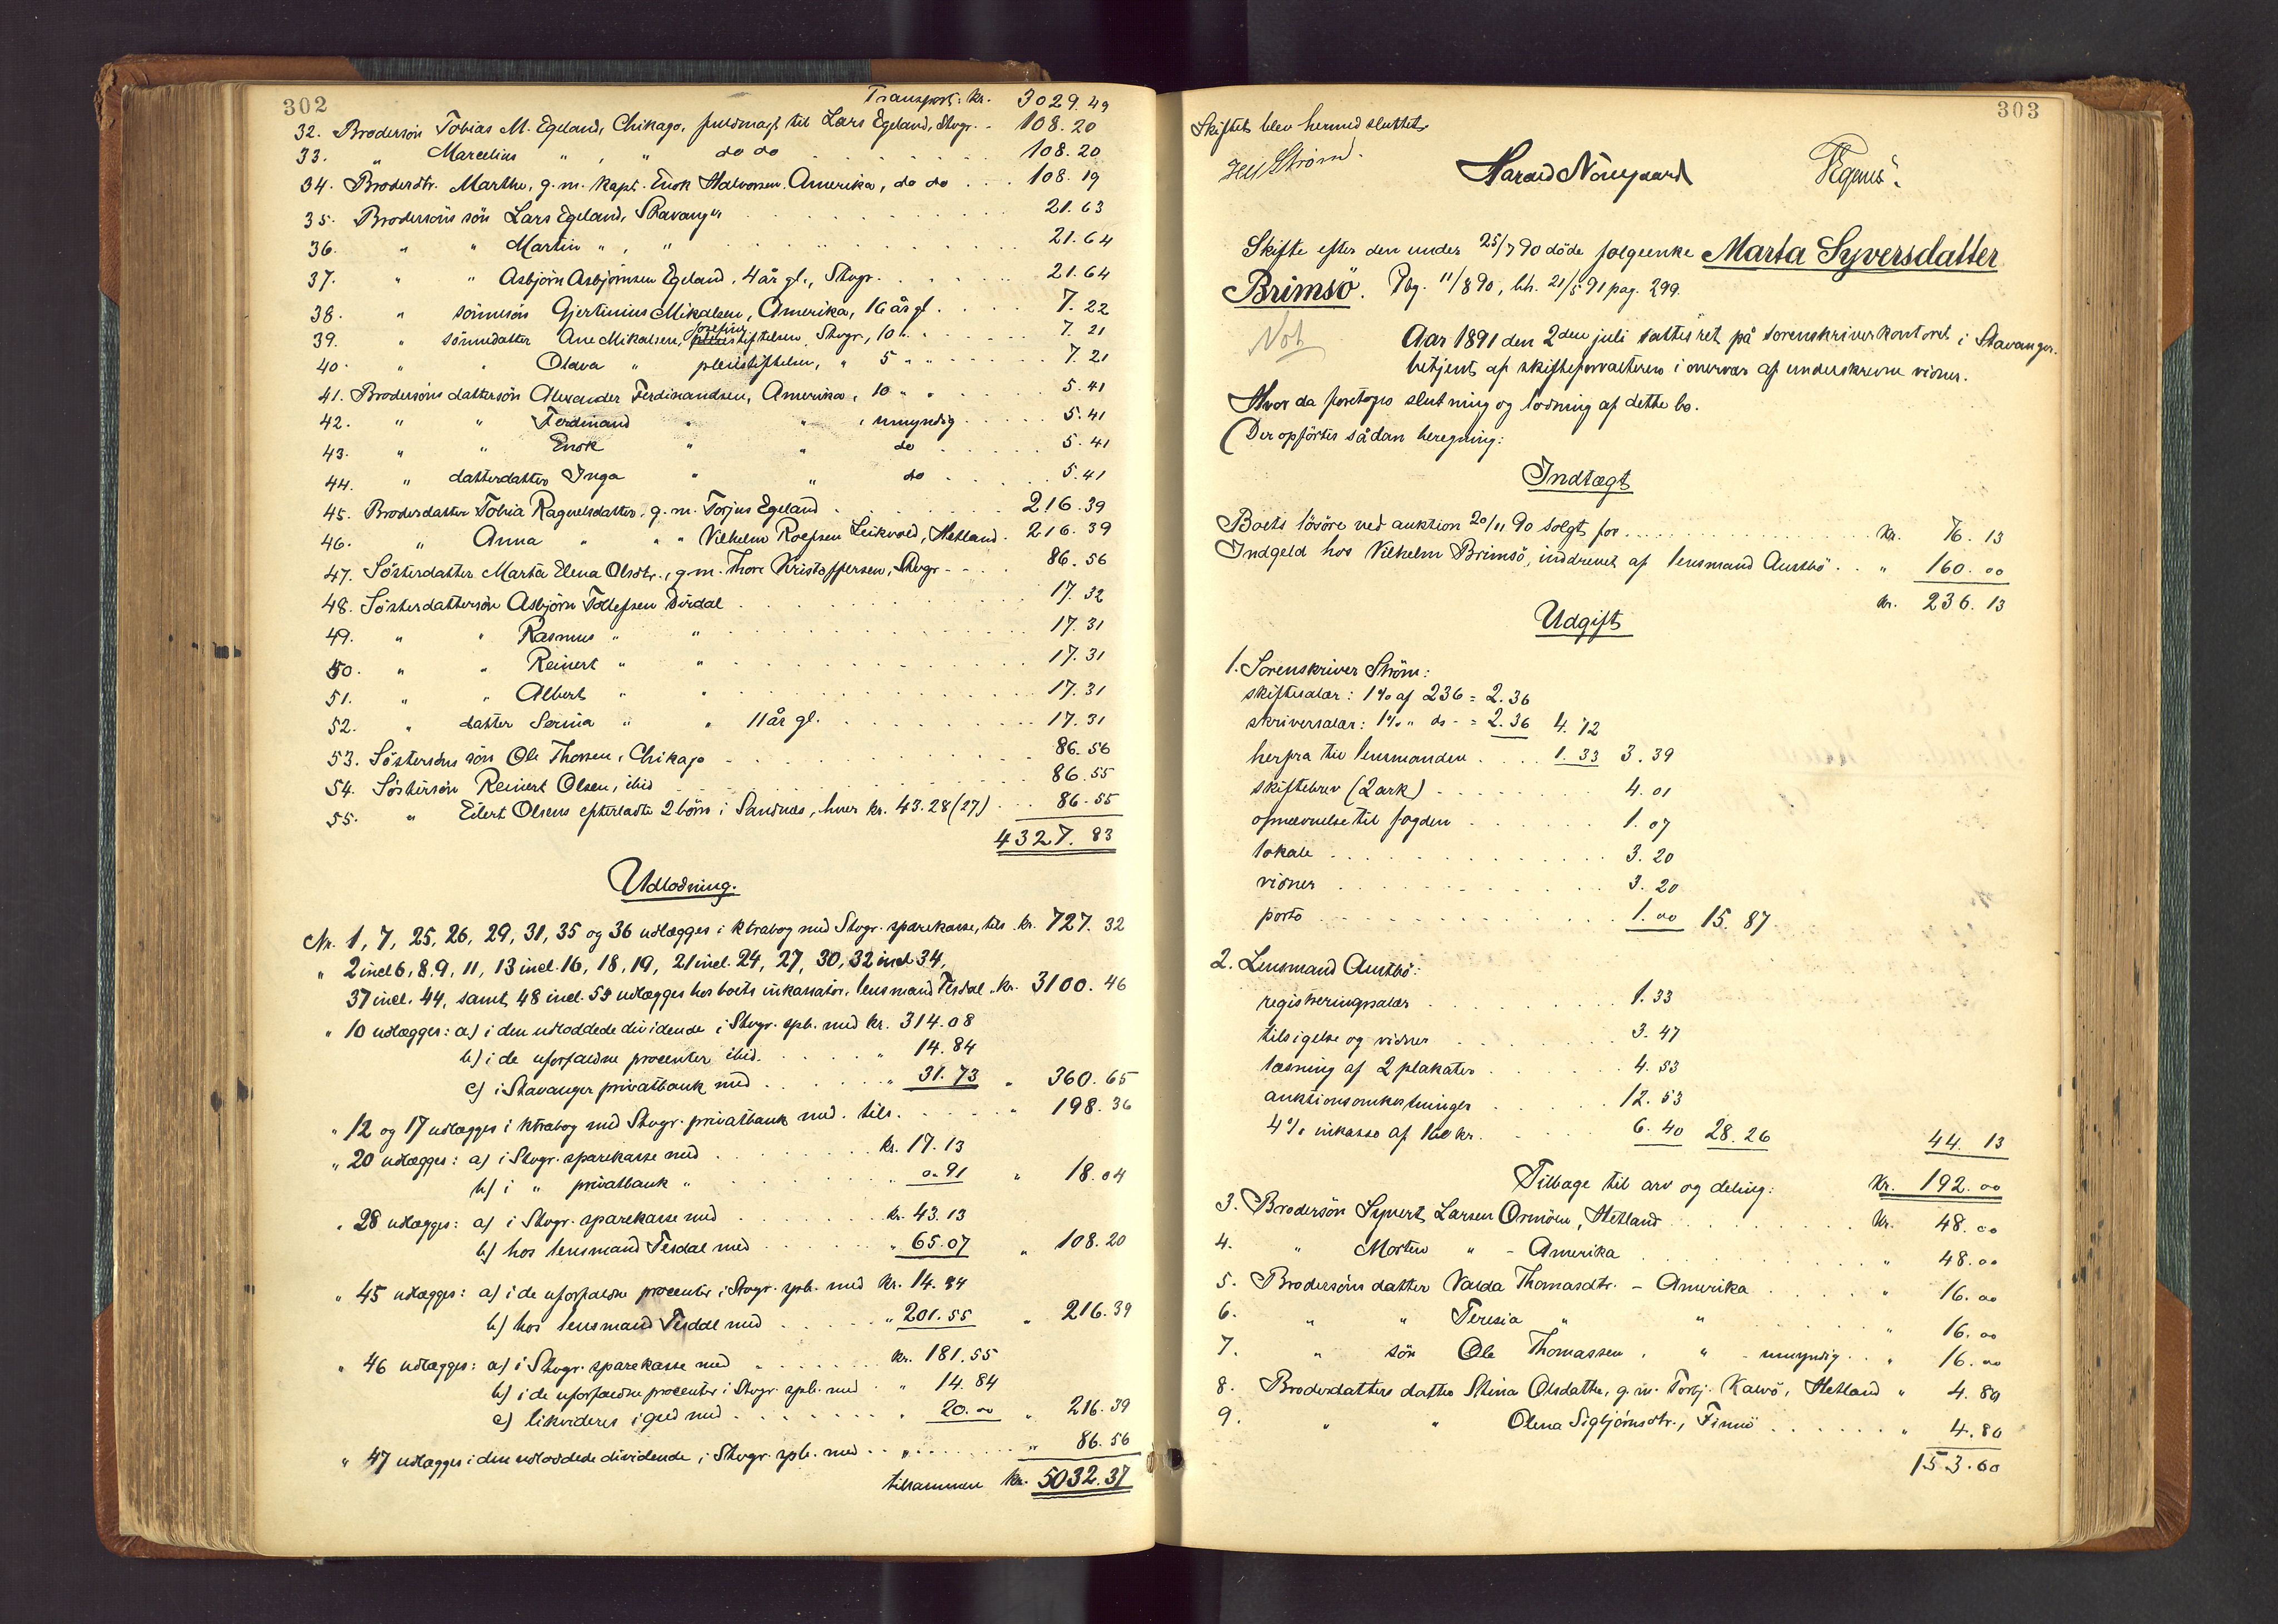 302
Transport: kr. 3029.49
32. Brodersön Tobias M. Egeland, Chikago, fuldmagt til Lars Egeland, Stvgr. - 108.20
33. " Marcelius " , " do do 108.20
34. Broderdtr. Marthe, g. m. kapt. Enok Halvorsen, Amerika, do do 108.19
35. Brodersöns sön Lars Egeland, Stavanger 21.63
36. " " Martin " , " 21.64
37. " " Asbjörn Asbjörnsen Egeland, 4 år gl., Stvgr. 21.64
38. " sönnesön Gjertinius Mikalsen, Amerika, 16 år gl. 7.22
39. " sönnedatter Ane Mikalsen, Josefinestiftelsen, Stvgr., 10 " 7.21
40. " " Olava " pleiestiftelsen, " 5 " " 7.21
41. Brodersöns dattersön Alexander Ferdinandsen, Amerika, 10 " " 5.41
42. " " Ferdinand " " , umyndig 5.41
43. " " Enok " " do 5.41
44. " datterdatter Inga " " do 5.41
45. Broderdatter Tobia Ragnelsdatter, g. m. Torjus Egeland 216.39
46. " Anna " " " Vilhelm Roefsen Leikvold, Hetland 216.39
47. Sösterdatter Marta Elena Olsdtr., g. m. Thore Kristoffersen, Stvgr. 86.56
48. Sösterdattersön Asbjörn Tollefsen Dirdal 17.32
49. " " Rasmus " " 17.31
50. " " Reinert " " 17.31
51. " " Albert " " 17.31
52. " datter Serina " " 11 år gl. 17.31
53. Söstersöns sön Ole Thorsen, Chikago 86.56
54. Söstersön Reinert Olsen, ibid 86.55
55. " Eilert Olsens efterladte 2 börn i Sandnæs, hver kr. 43.28 (27) 86.55
4327.83
Udlodning.
Nr. 1, 7, 25, 26, 29, 31, 35 og 36 udlægges i ktrabog med Stvgr. sparekasse, tils. kr. 727.32
" 2 incl 6, 8, 9, 11, 13 incl. 16, 18, 19, 21 incl. 24, 27, 30, 32 incl 34,
37 incl. 44, samt 48 incl. 55 udlægges hos boets inkassator, lensmand Tesdal " kr. 3100.46
" 10 udlægges: a) i den udloddede dividende i Stvgr. spb. med kr. 314.08
b) i de uforfaldne procenter ibid. " 14.84
c) i Stavanger privatbank med " 31.73 " 360.65
" 12 og 17 udlægges i ktrabog med Stvgr. privatbank med tils. " 198.36
" 20 udlægges: a) i Stvgr. sparekasse med kr. 17.13
b) i " privatbank " " 0.91 " 18.04
" 28 udlægges: a) i Stvgr. sparekasse med kr. 43.13
b) hos lensmand Tesdal med " 65.07 " 108.20
" 45 udlægges: a) i de uforfaldne procenter i Stvgr. spb. med kr. 14.84
b) hos lensmand Tesdal med " 201.55 " 216.39
" 46 udlægges: a) i Stvgr. sparekasse med kr. 181.55
b) i de uforfaldne procenter i Stvgr. spb. med " 14.84
c) likvideres i gjæld med " 20.00 " 216.39
" 47 udlægges i den udloddede dividende i Stvgr. spb. med " " 86.56
tilsammen kr. 5032.37
303
Skiftet blev hermed sluttet.
Ström. Harald Norgaard
Skifte efter den under 25/7 90 döde folgeenke Marta Syversdatter
Brimsö. Pbg. 11/8 90, bh. 21/5 91 pag. 299.
Not
Aar 1891 den 2den juli sattes ret på sorenskriverkontoret i Stavanger,
betjent af skifteforvalteren i overvær af underskrevne vidner.
Hvor da foretoges slutning og lodning af dette bo.
Der opförtes sådan beregning:
Indtægt
Boets lösöre ved auktion 20/11 90 solgt for kr. 76.13
Indgjeld hos Vilhelm Brimsö, inddrevet af lensmand Austbö " 160.00
kr. 236.13
Udgift
1. Sorenskriver Ström:
skiftesalær: 1% af 236 = 2.36
skriversalær: 1% " do - = 2.36 4.72
herfra til lensmanden 1.33 3.39
skiftebrev (2 ark) 4.01
opnævnelse til fogden 1.07
lokale 3.20
vidner 3.20
porto 1.00 15.87
2. Lensmand Austbö:
registreringssalær 1.33
tilsigelse og vidner 3.47
læsning af 2 plakater 4.53
auktionsomkostninger 12.53
4% inkasso af 160 kr. 6.40 28.26 44.13
Tilbage til arv og deling: kr. 192.00
3. Brodersön Syvert Larsen Ormöen, Hetland kr. 48.00
4. " Morten " - Amerika " 48.00
5. Brodersöns datter Valda Thomasdtr. - Amerika " 16.00
6. " " Teresia " " " 16.00
7. " sön Ole Thomassen, " - umyndig " 16.00
8. Broderdatters datter Stina Olsdatter, g. m. Torbj. Kalvö, Hetland " 4.80
9. " " Olena Sigbjörnsdtr., Finnö " 4.80
153.60